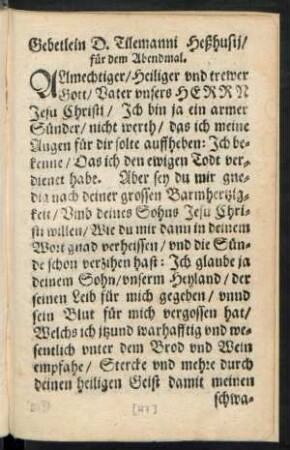 Gebetlein D. Tilemanni Heßhusij/
für dem Abendmal.
ALmechtiger/ Heiliger vnd trewer
Gott/ Vater vnsers HERRN
Jesu Christi/ Ich bin ja ein armer
Sünder/ nicht werth/ das ich meine
Augen für dir solte auffheben: Ich be-
kenne/ Das ich den ewigen Todt ver-
dienet habe. Aber sey du mir gne-
dig nach deiner grossen Barmhertzig-
keit/ Vmb deines Sohns Jesu Chri-
sti willen/ Wie du mir dann in deinem
Wort gnad verheissen/ vnd die Sün-
de schon verzihen hast: Ich glaube ja
deinem Sohn/ vnserm Heyland/ der
seinen Leib für mich gegeben/ vnnd
sein Blut für mich vergossen hat/
Welchs ich itzund warhafftig vnd we-
sentlich vnter dem Brod vnd Wein
empfahe/ Stercke vnd mehre durch
deinen heiligen Geist damit meinen
schwa-
[47]